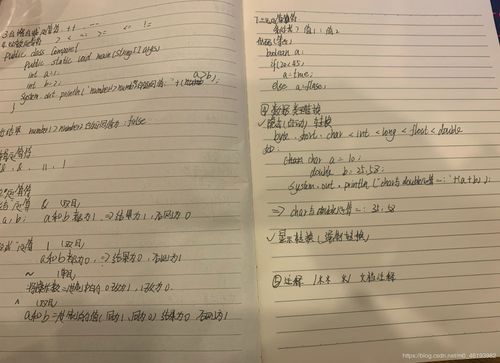 3.自增自减运算符 ++ --
4.比较运算符 > < == >= <= !=
public class Compare{
public static void main(String[] args)
int a=1;
int b=2;
System.out.println("number1>number2的返回值为:"+(a>b));
}
结果 number1>number2的返回值为:false
运算符
&, ||, !
运算符
a,b; & 双目
a和b都为1,=>结果为1,否则为0
| 双目
a和b都为0,=>结果为0,否则为1
~ 单目
0变为1,1变为0.
^ 双目
结果为0,否则为1
7.三元运算符
条件式?值1:值2
boolean a;
if(20<45)
a=true;
else a=false;
④数据类型转换
✓隐式(自动)转换
byte, short, char < int < long < float < double
char a = 10;
double b=25.58;
System.out.println("char与double运算=:"+(a+b));
=> char与double运算=: 35.58
✓显式转换(强制转换)
⑤注释 /** */ 文档注释
https://blog.csdn.net/m0_46193982